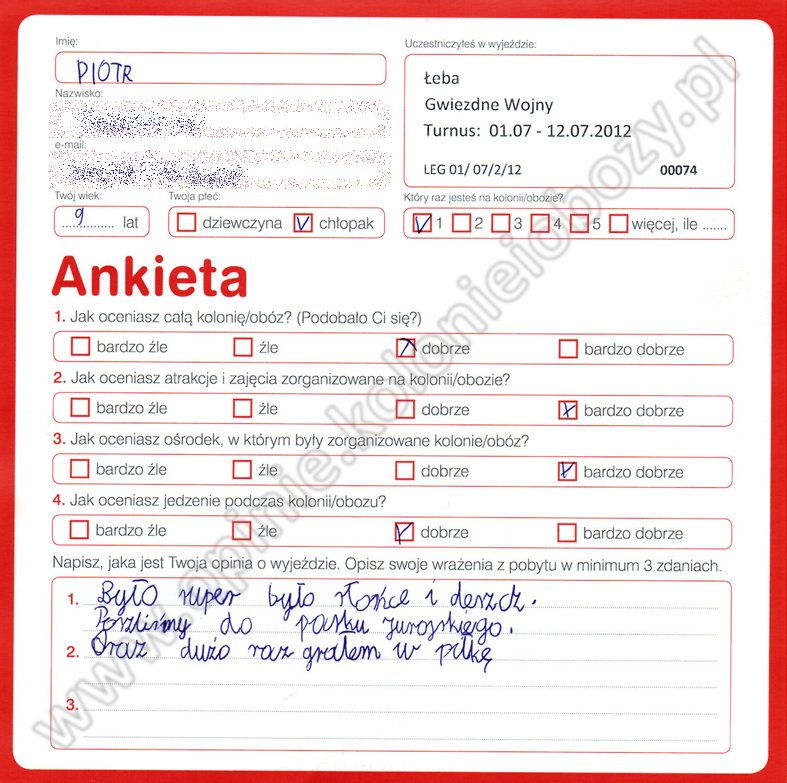 Imię:
PIOTR
Nazwisko:
e-mail:
Twój wiek:
9 lat
Twoja płeć:
dziewczyna chłopak
Uczestniczyłeś w wyjeździe:
Łeba
Gwiezdne Wojny
Turnus: 01.07 - 12.07.2012
LEG 01/ 07/2/12 00074
Który raz jesteś na kolonii/obozie?
1 2 3 4 5 więcej, ile .......
Ankieta
1. Jak oceniasz całą kolonię/obóz? (Podobało Ci się?)
bardzo źle źle dobrze bardzo dobrze
2. Jak oceniasz atrakcje i zajęcia zorganizowane na kolonii/obozie?
bardzo źle źle dobrze bardzo dobrze
3. Jak oceniasz ośrodek, w którym były zorganizowane kolonie/obóz?
bardzo źle źle dobrze bardzo dobrze
4. Jak oceniasz jedzenie podczas kolonii/obozu?
bardzo źle źle dobrze bardzo dobrze
Napisz, jaka jest Twoja opinia o wyjeździe. Opisz swoje wrażenia z pobytu w minimum 3 zdaniach.
1. Było super było słońce i deszcz.
Poszliśmy do parku jurajskiego.
2. Oraz dużo raz grałem w piłkę
3.
www.opinie.kolonieiobozy.pl